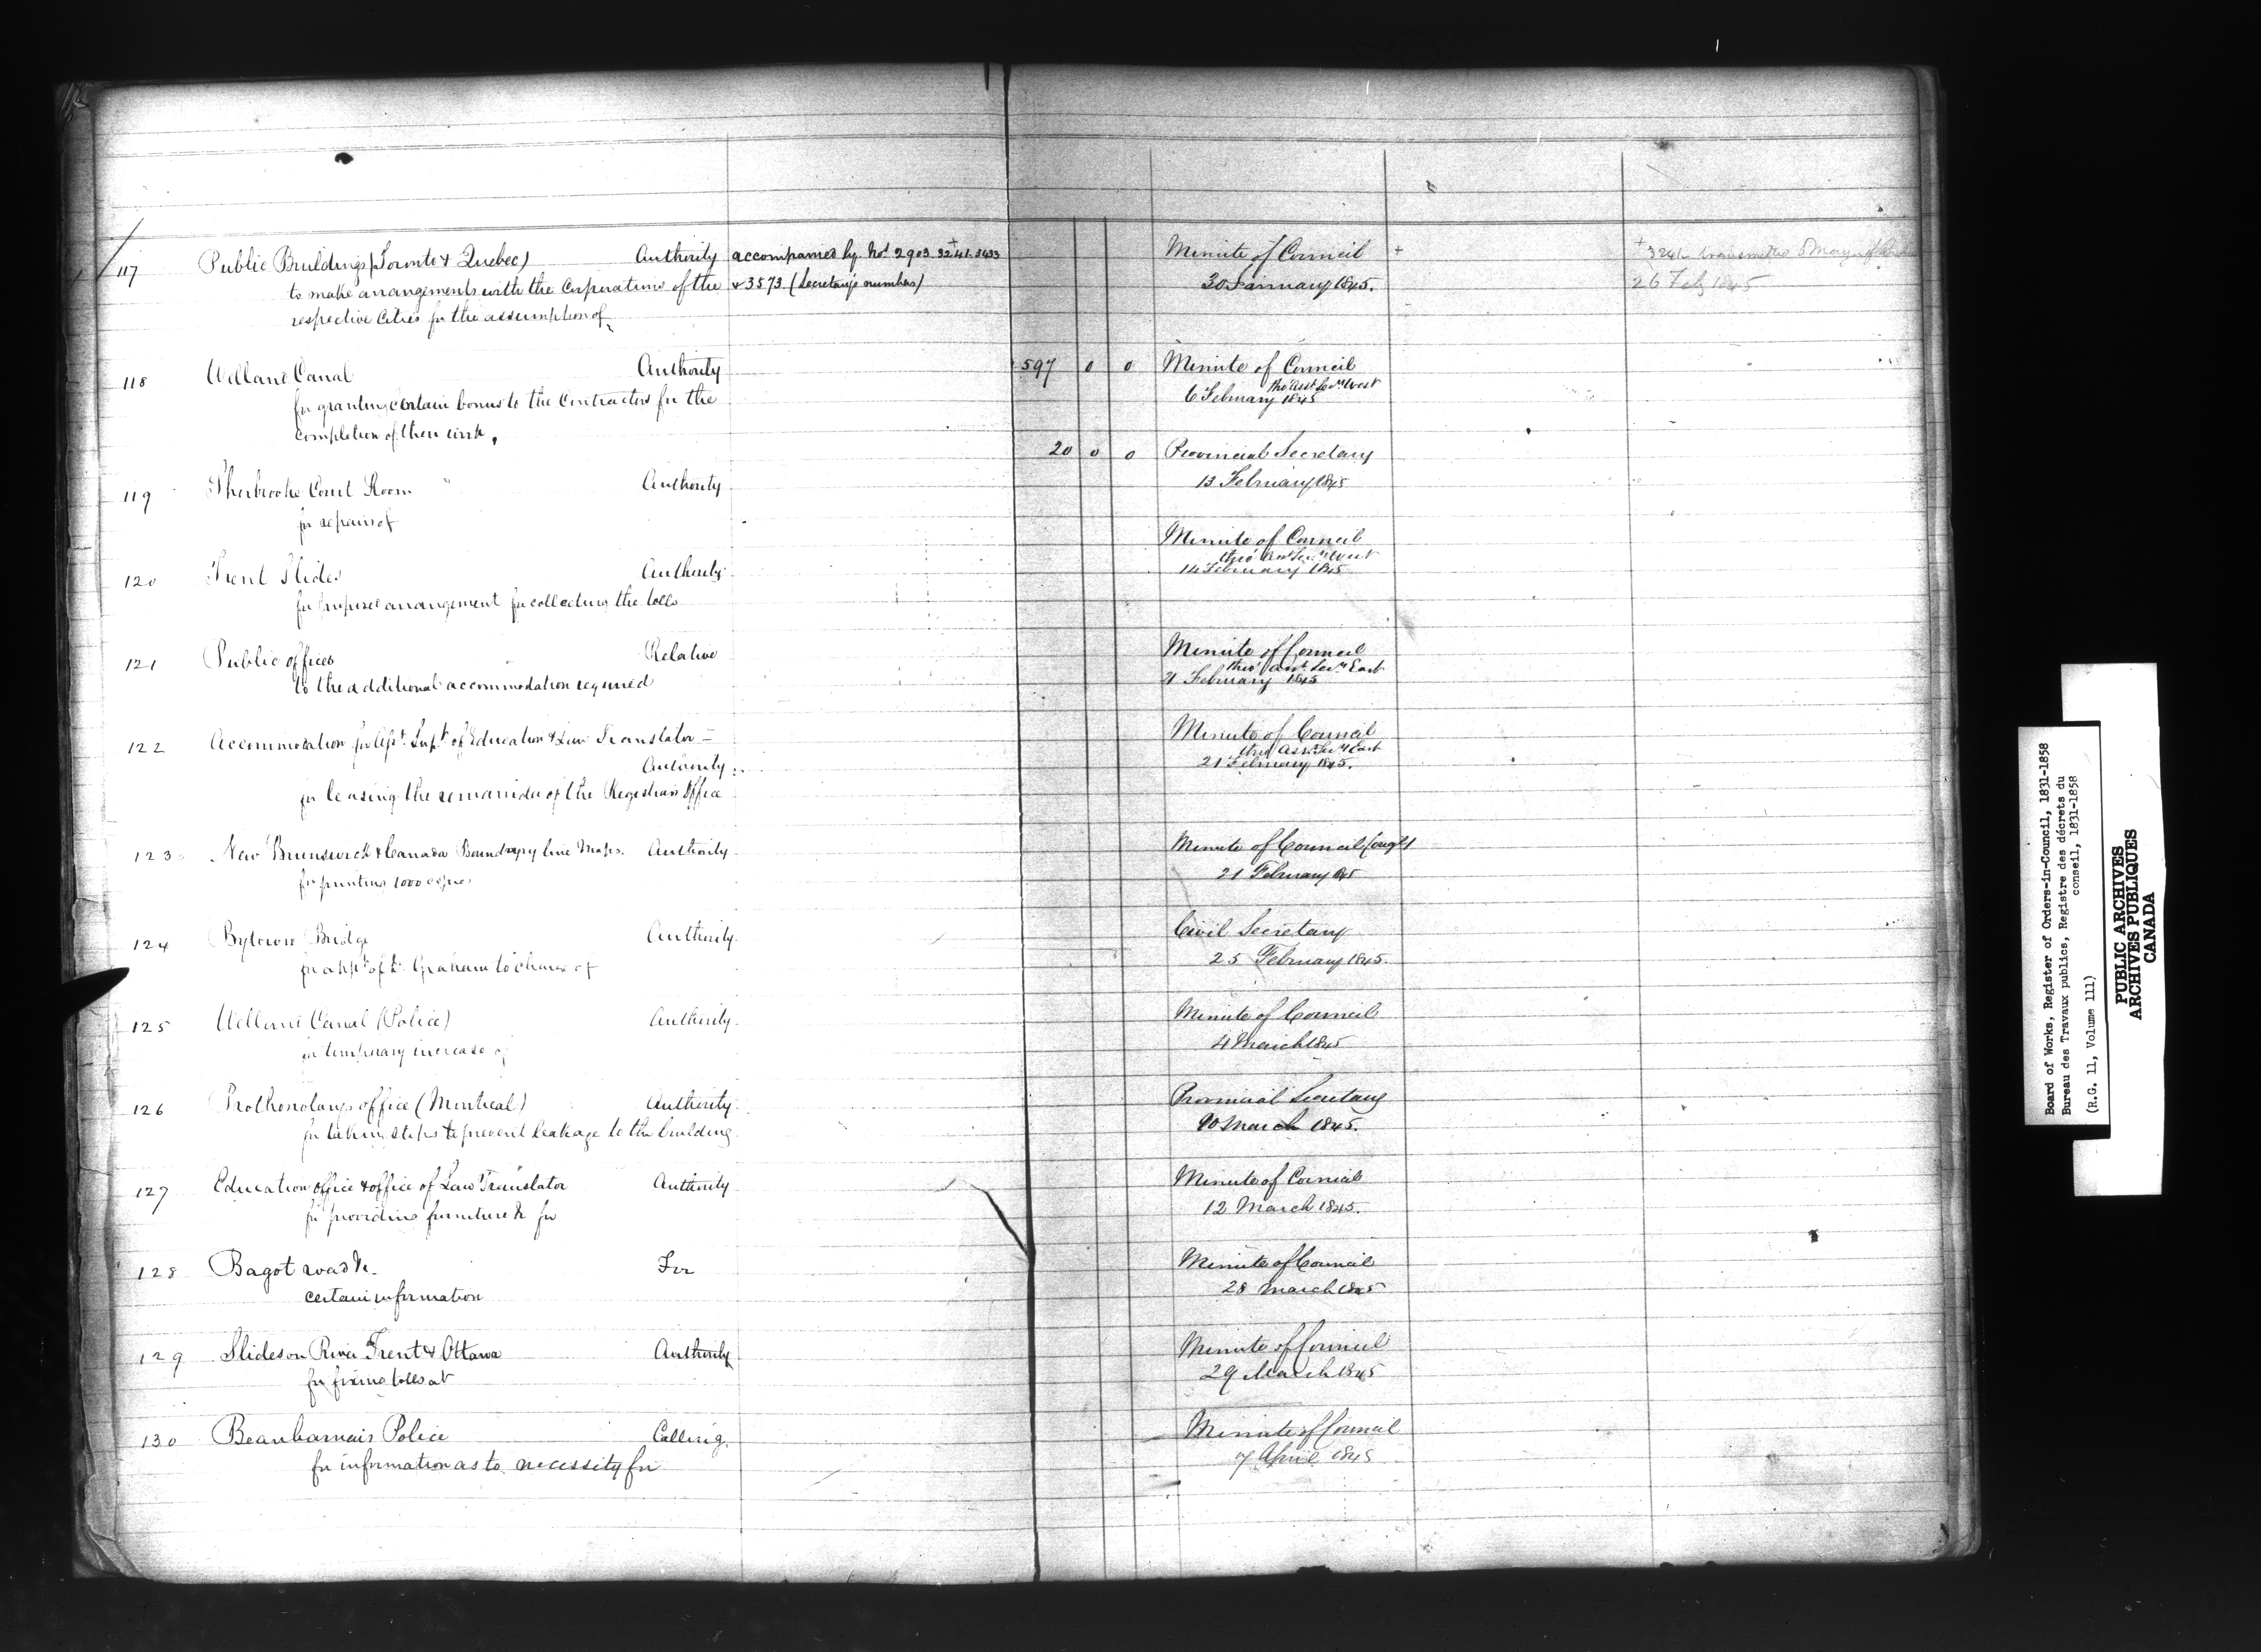 117 Public Buildings (Toronto & Quebec) Authority accompanied by Nos 2903. 3241. 3433 Minute of Council + + 3241 transmitted Mayor of
to make arrangements with the Corporations of the & 3573 (Secretary's numbers) 30 January 1845. 26 Feby 1845
respective Cities for the assumption of
118 Welland Canal Authority 597 0 0 Minute of Council
for granting certain bonus to the Contractors for the thro' Asst Secy West
completion of their work. 6 February 1845
119 Sherbrooke Court Room Authority 20 0 0 Provincial Secretary
for repairs of 13 February 1845
120 Trent Slides Authority Minute of Council
thro' Asst Secy West
for proposed arrangement for collecting the tolls 14 February 1845
121 Public offices Relative Minute of Council
thro' Asst Secy East
to the additional accommodation required 21 February 1845
122 Accommodation for Asst. Supt. of Education & Law Translator – Minute of Council
Authority thro' Asst Secy East
for leasing the remainder of the Registrars Office 21 February 1845.
123 New Brunswick & Canada Boundary line Maps. Authority Minute of Council (orig)
for printing 1000 copies 21 February 1845
124 Bytown Bridge Authority Civil Secretary
for appt of Graham to charge of 25 February 1845.
125 Welland Canal (Police) Authority Minute of Council
for temporary increase of 4 March 1845
126 Prothonotarys office (Montreal) Authority Provincial Secretary
for taking steps to prevent leakage to the building 10 March 1845.
127 Education office & office of Law Translator Authority Minute of Council
for providing furniture &c for 12 March 1845.
128 Bagot road &c. For Minute of Council
certain information 28 March 1845
129 Slides on River Trent & Ottawa Authority Minute of Council
for fixing tolls at 29 March 1845
130 Beauharnais Police Calling Minute of Council
for information as to necessity for 7 April 1845
Board of Works, Register of Orders-in-Council, 1831-1858
Bureau des Travaux publics, Registre des décrets du
conseil, 1831-1858
(R.G. 11, Volume 111)
PUBLIC ARCHIVES
ARCHIVES PUBLIQUES
CANADA